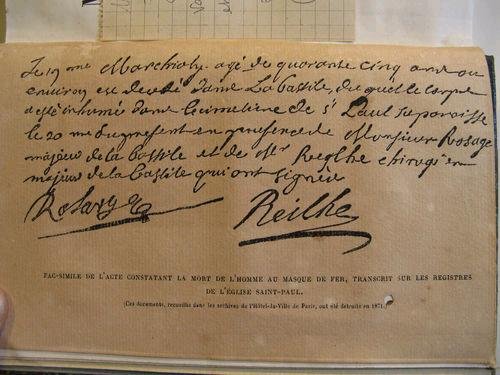 Le 19 me Marchioly agé de quarante cinq ans ou
environ est decedé dans La bastile, duquel le corps
a esté inhumé dans le cimetiere de St Paul sa paroisse
le 20 me du present en presence de Monsieur Rosage
majeur de la bastile et de Mr Reglhe chirugien
majeur de la bastile qui ont signés
Rosarges
Reilhe
FAC-SIMILE DE L'ACTE CONSTATANT LA MORT DE L'HOMME AU MASQUE DE FER, TRANSCRIT SUR LES REGISTRES
DE L'ÉGLISE SAINT-PAUL.
(Ces documents, recueillis dans les archives de l'Hôtel-de-Ville de Paris, ont été détruits en 1871.)